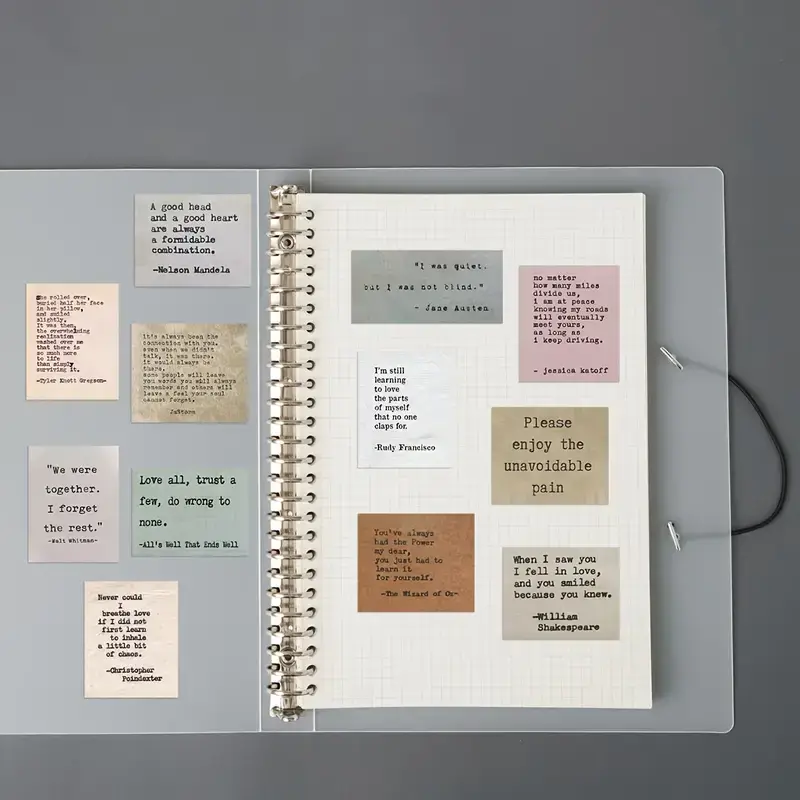 A good head
and a good heart
are always
a formidable
combination.
—Nelson Mandela
She rolled over,
buried half her face
in her pillow,
and smiled
slightly.
It was then,
the overwhelming
realization
washed over me
that there is
so much more
to life
than simply
surviving it.
-Tyler Knott Gregson-
it's always been the
connection with you.
even when we didn't
talk, it was there.
it would always be
there.
some people will leave
you words you will always
remember and others will
leave a feel your soul
cannot forget.
JmStorm
"We were
together.
I forget
the rest."
-Walt Whitman-
Love all, trust a
few, do wrong to
none.
-All's Well That Ends Well
Never could
I
breathe love
if I did not
first learn
to inhale
a little bit
of chaos.
-Christopher
Poindexter
"I was quiet.
but I was not blind."
- Jane Austen
no matter
how many miles
divide us,
i am at peace
knowing my roads
will eventually
meet yours,
as long as
i keep driving.
- jessica katoff
I'm still
learning
to love
the parts
of myself
that no one
claps for.
-Rudy Francisco
Please
enjoy the
unavoidable
pain
You've always
had the Power
my dear,
you just had to
learn it
for yourself.
-The Wizard of Oz-
When I saw you
I fell in love,
and you smiled
because you knew.
—William
Shakespeare